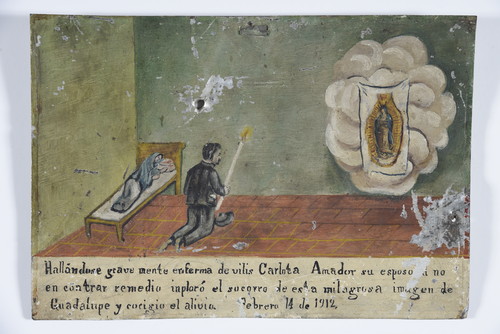 Hallándose grave mente enferma de vilis Carlota Amador su esposo al no
en contrar remedio inploró el socorro de esta milagrosa imagen de
Guadalupe y cocigio el alivio. Febrero 14 de 1912.